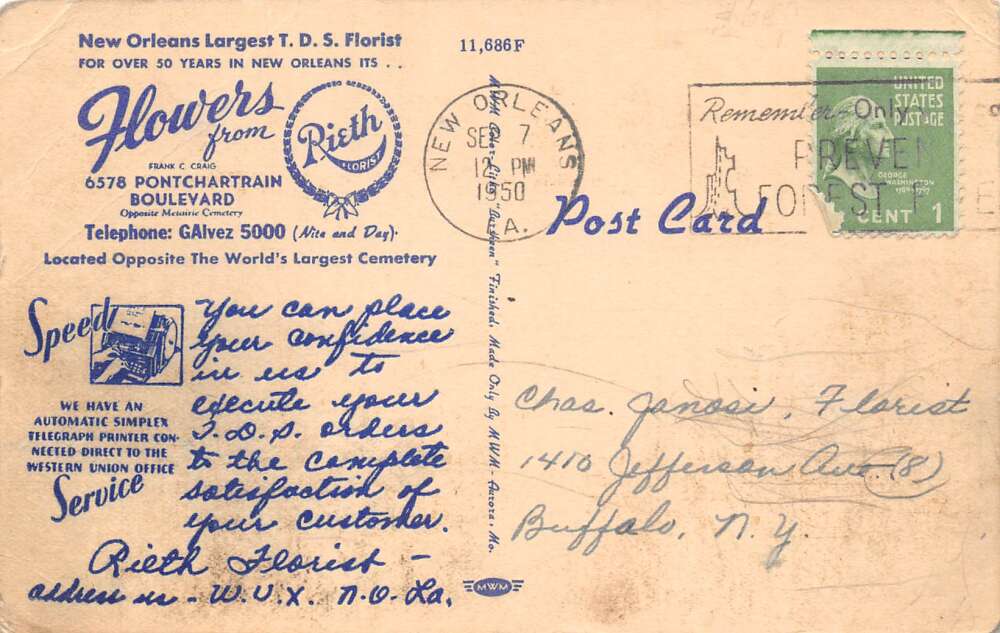 New Orleans Largest T. D. S. Florist
FOR OVER 50 YEARS IN NEW ORLEANS ITS . .
Flowers
from
Rieth
FLORIST
FRANK C. CRAIG
6578 PONTCHARTRAIN
BOULEVARD
Opposite Metairie Cemetery
Telephone: GAlvez 5000 (Nite and Day).
Located Opposite The World's Largest Cemetery
Speed
WE HAVE AN
AUTOMATIC SIMPLEX
TELEGRAPH PRINTER CON-
NECTED DIRECT TO THE
WESTERN UNION OFFICE
Service
You can place
your confidence
in us to
execute your
T.D.S. orders
to the complete
satisfaction of
your customer.
Rieth Florist –
address us - W.U.X. N.O. La.
11,686F
MWM Color-Litho "Burskeen" Finished. Made Only By MWM - Aurora, Mo.
MWM
NEW ORLEANS
SEP 7
12 PM
1950
LA.
Remember - Only
PREVEN
FOREST F RE
UNITED
STATES
POSTAGE
GEORGE
WASHINGTON
1789-1797
CENT 1
Post Card
Chas. Janosi, Florist
1410 Jefferson Ave. (8)
Buffalo, N. Y.